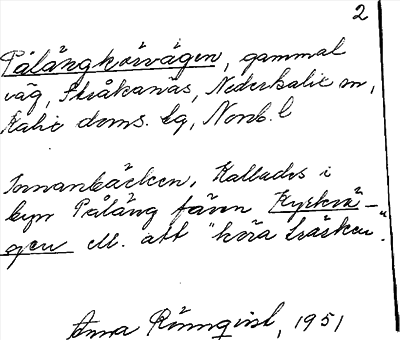 2
Pålängkörvägen, gammal
väg, Stråkanäs, Nederkalix sn,
Kalix doms. lg, Norrb. l
Innanbäcken, Kallades i
byn Påläng även Kyrkvä-
gen el. att "köra träsken".
Anna Rönnqvist, 1951